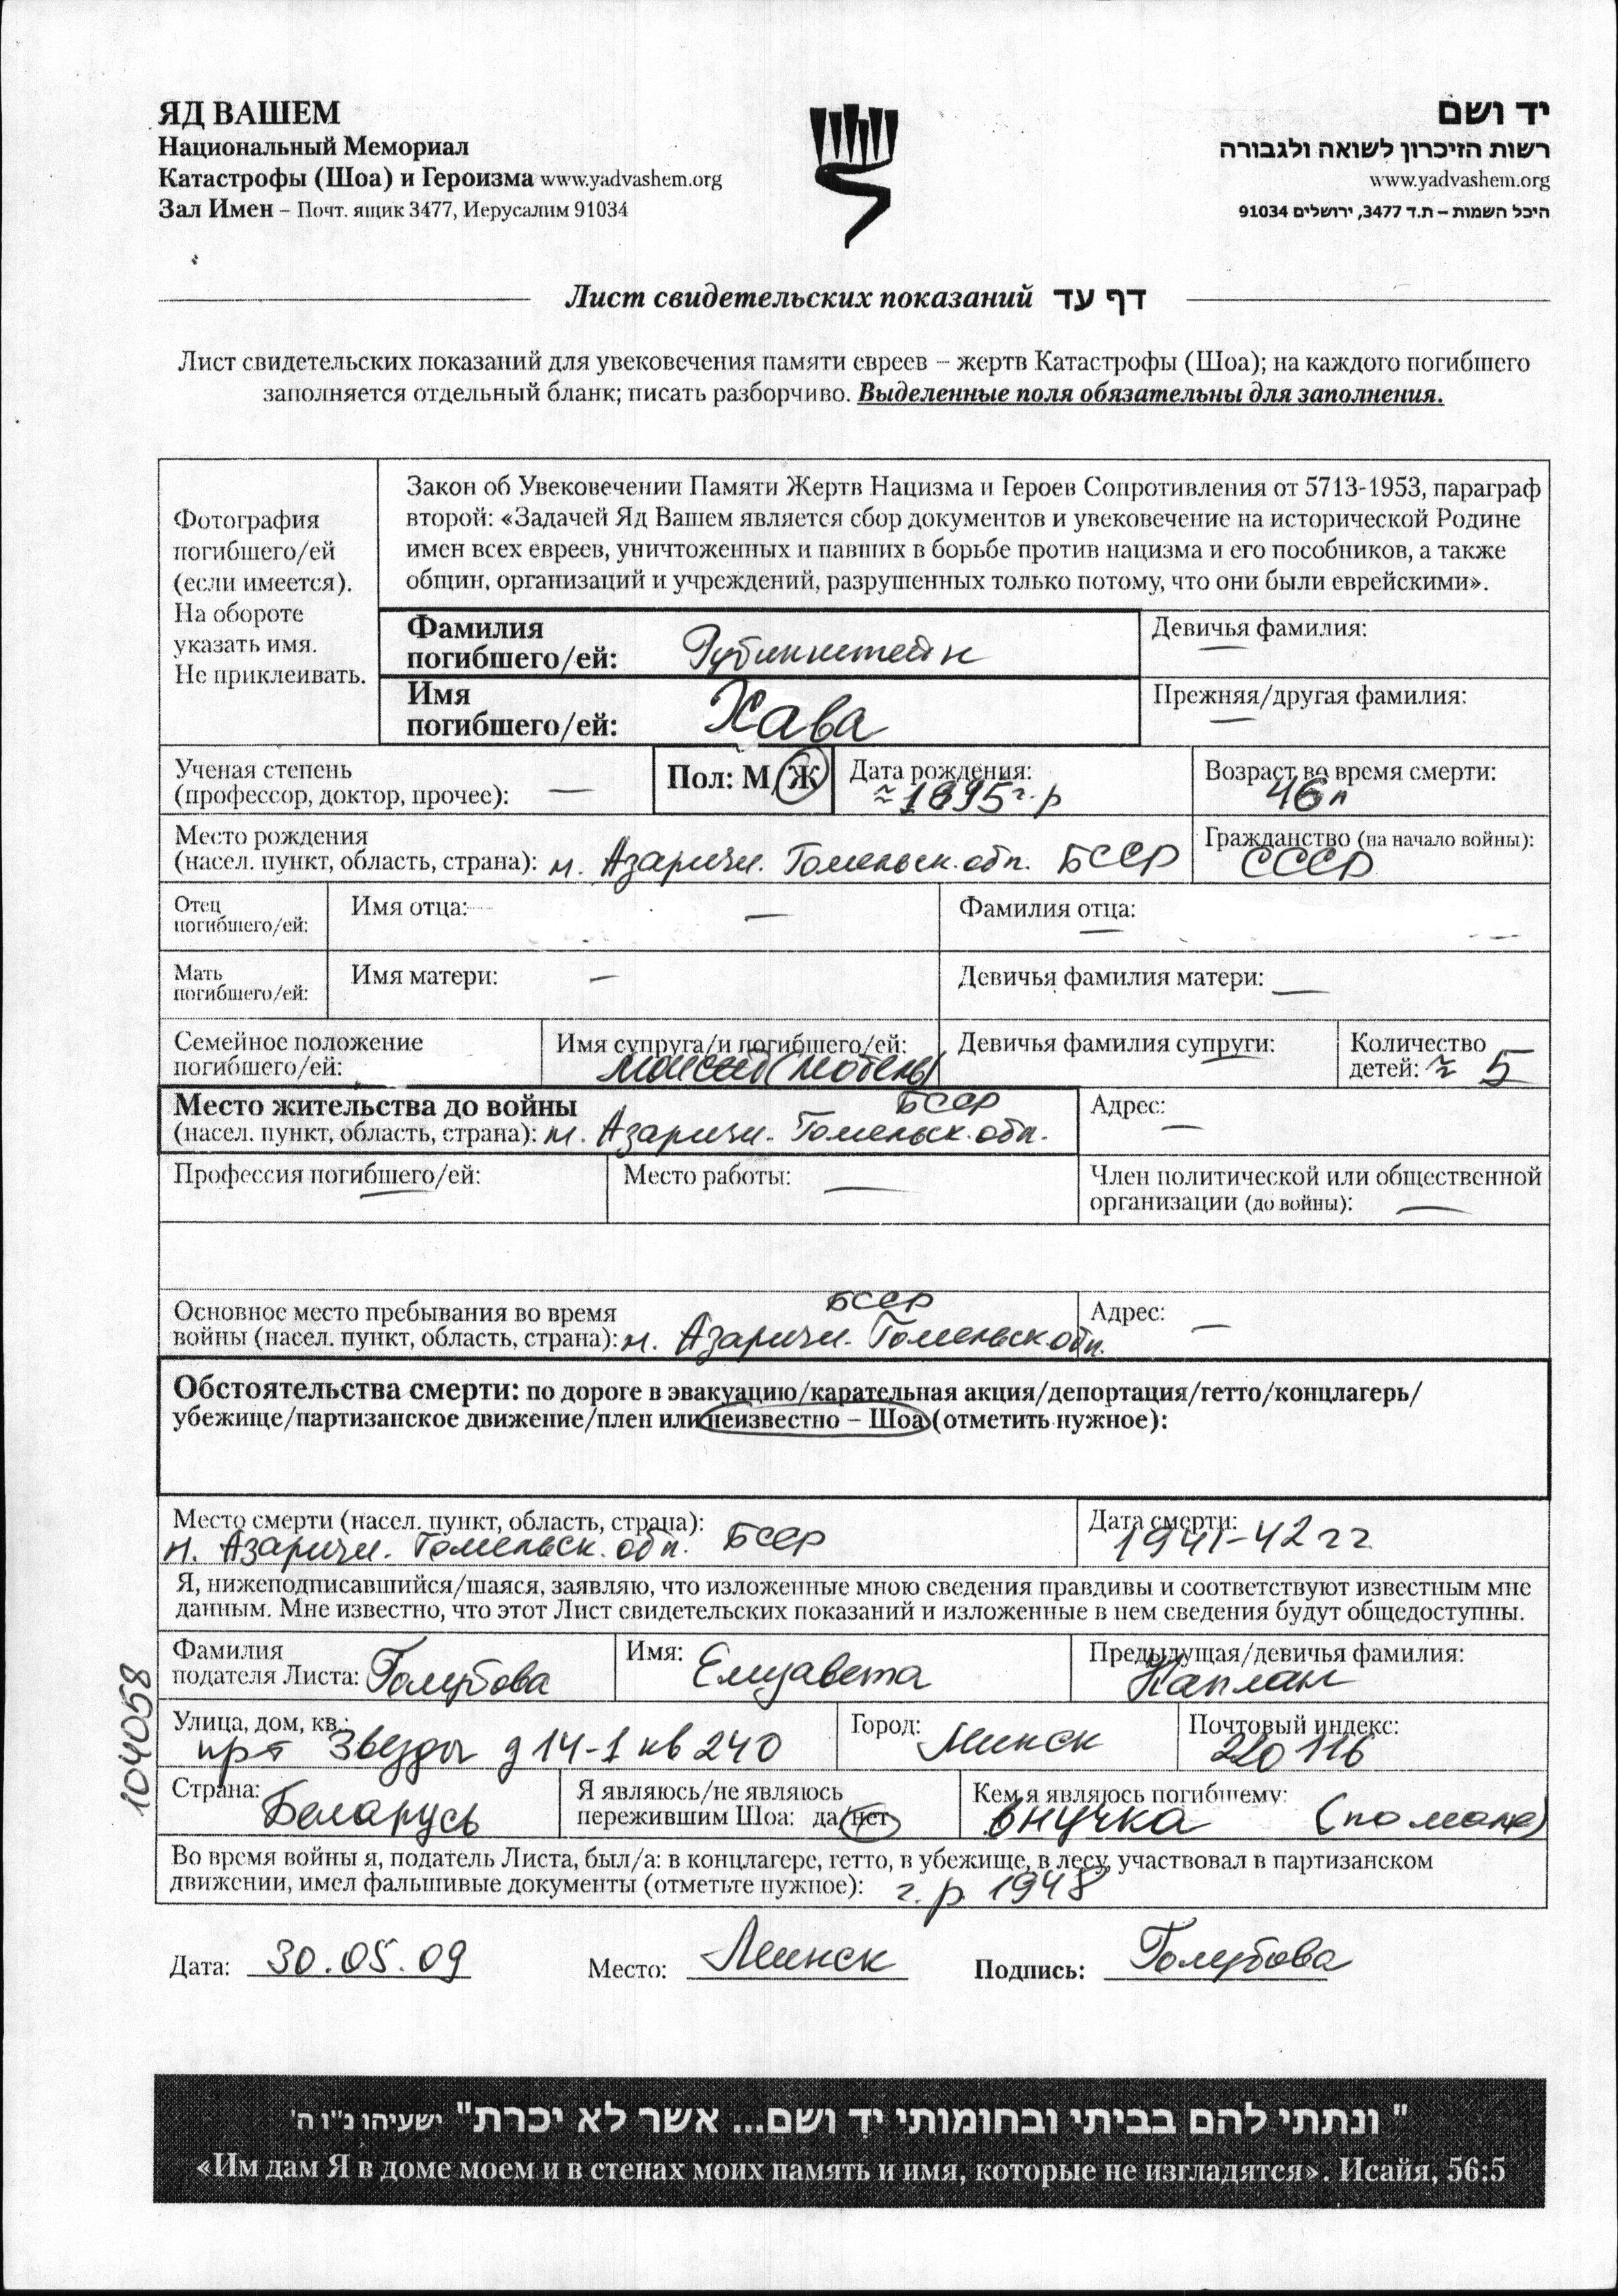 ЯД ВАШЕМ
Национальный Мемориал
Катастрофы (Шоа) и Героизма www.yadvashem.org
Зал Имен – Почт. ящик 3477, Иерусалим 91034
יד ושם
רשות הזיכרון לשואה ולגבורה
www.yadvashem.org
היכל השמות – ת.ד 3477, ירושלים 91034
Лист свидетельских показаний דף עד
Лист свидетельских показаний для увековечения памяти евреев – жертв Катастрофы (Шоа); на каждого погибшего
заполняется отдельный бланк; писать разборчиво. Выделенные поля обязательны для заполнения.
Фотография
погибшего/ей
(если имеется).
На обороте
указать имя.
Не приклеивать.
Закон об Увековечении Памяти Жертв Нацизма и Героев Сопротивления от 5713-1953, параграф
второй: «Задачей Яд Вашем является сбор документов и увековечение на исторической Родине
имен всех евреев, уничтоженных и павших в борьбе против нацизма и его пособников, а также
общин, организаций и учреждений, разрушенных только потому, что они были еврейскими».
Фамилия
погибшего/ей: Рубинштейн
Девичья фамилия: —
Имя
погибшего/ей: Хава
Прежняя/другая фамилия: —
Ученая степень
(профессор, доктор, прочее): —
Пол: М/Ж
Дата рождения:
≈ 1895 г.р
Возраст во время смерти:
46 л
Место рождения
(насел. пункт, область, страна): м. Азаричи. Гомельск. обл. БССР
Гражданство (на начало войны):
СССР
Отец
погибшего/ей:
Имя отца: —
Фамилия отца: —
Мать
погибшего/ей:
Имя матери: —
Девичья фамилия матери: —
Семейное положение
погибшего/ей:
Имя супруга/и погибшего/ей:
Моисей
Девичья фамилия супруги: —
Количество
детей: ≈ 5
Место жительства до войны БССР
(насел. пункт, область, страна): м. Азаричи. Гомельск. обл.
Адрес: —
Профессия погибшего/ей: —
Место работы: —
Член политической или общественной
организации (до войны): —
Основное место пребывания во время БССР
войны (насел. пункт, область, страна): м. Азаричи. Гомельск обл.
Адрес: —
Обстоятельства смерти: по дороге в эвакуацию/карательная акция/депортация/гетто/концлагерь/
убежище/партизанское движение/плен или неизвестно – Шоа (отметить нужное):
Место смерти (насел. пункт, область, страна):
м. Азаричи. Гомельск. обл. БССР
Дата смерти:
1941-42 гг
Я, нижеподписавшийся/шаяся, заявляю, что изложенные мною сведения правдивы и соответствуют известным мне
данным. Мне известно, что этот Лист свидетельских показаний и изложенные в нем сведения будут общедоступны.
Фамилия
подателя Листа: Голубова
Имя: Елизавета
Предыдущая/девичья фамилия:
Каплан
Улица, дом, кв.:
пр-т Звезды д 14-1 кв 240
Город: Минск
Почтовый индекс:
220116
Страна: Беларусь
Я являюсь/не являюсь
пережившим Шоа: да/нет
Кем я являюсь погибшему:
внучка (по маме)
Во время войны я, податель Листа, был/а: в концлагере, гетто, в убежище, в лесу, участвовал в партизанском
движении, имел фальшивые документы (отметьте нужное): г.р. 1948
104058
Дата: 30.05.09 Место: Минск Подпись: Голубова
" ונתתי להם בביתי ובחומותי יד ושם... אשר לא יכרת" ישעיהו נ"ו ה'
«Им дам Я в доме моем и в стенах моих память и имя, которые не изгладятся». Исайя, 56:5